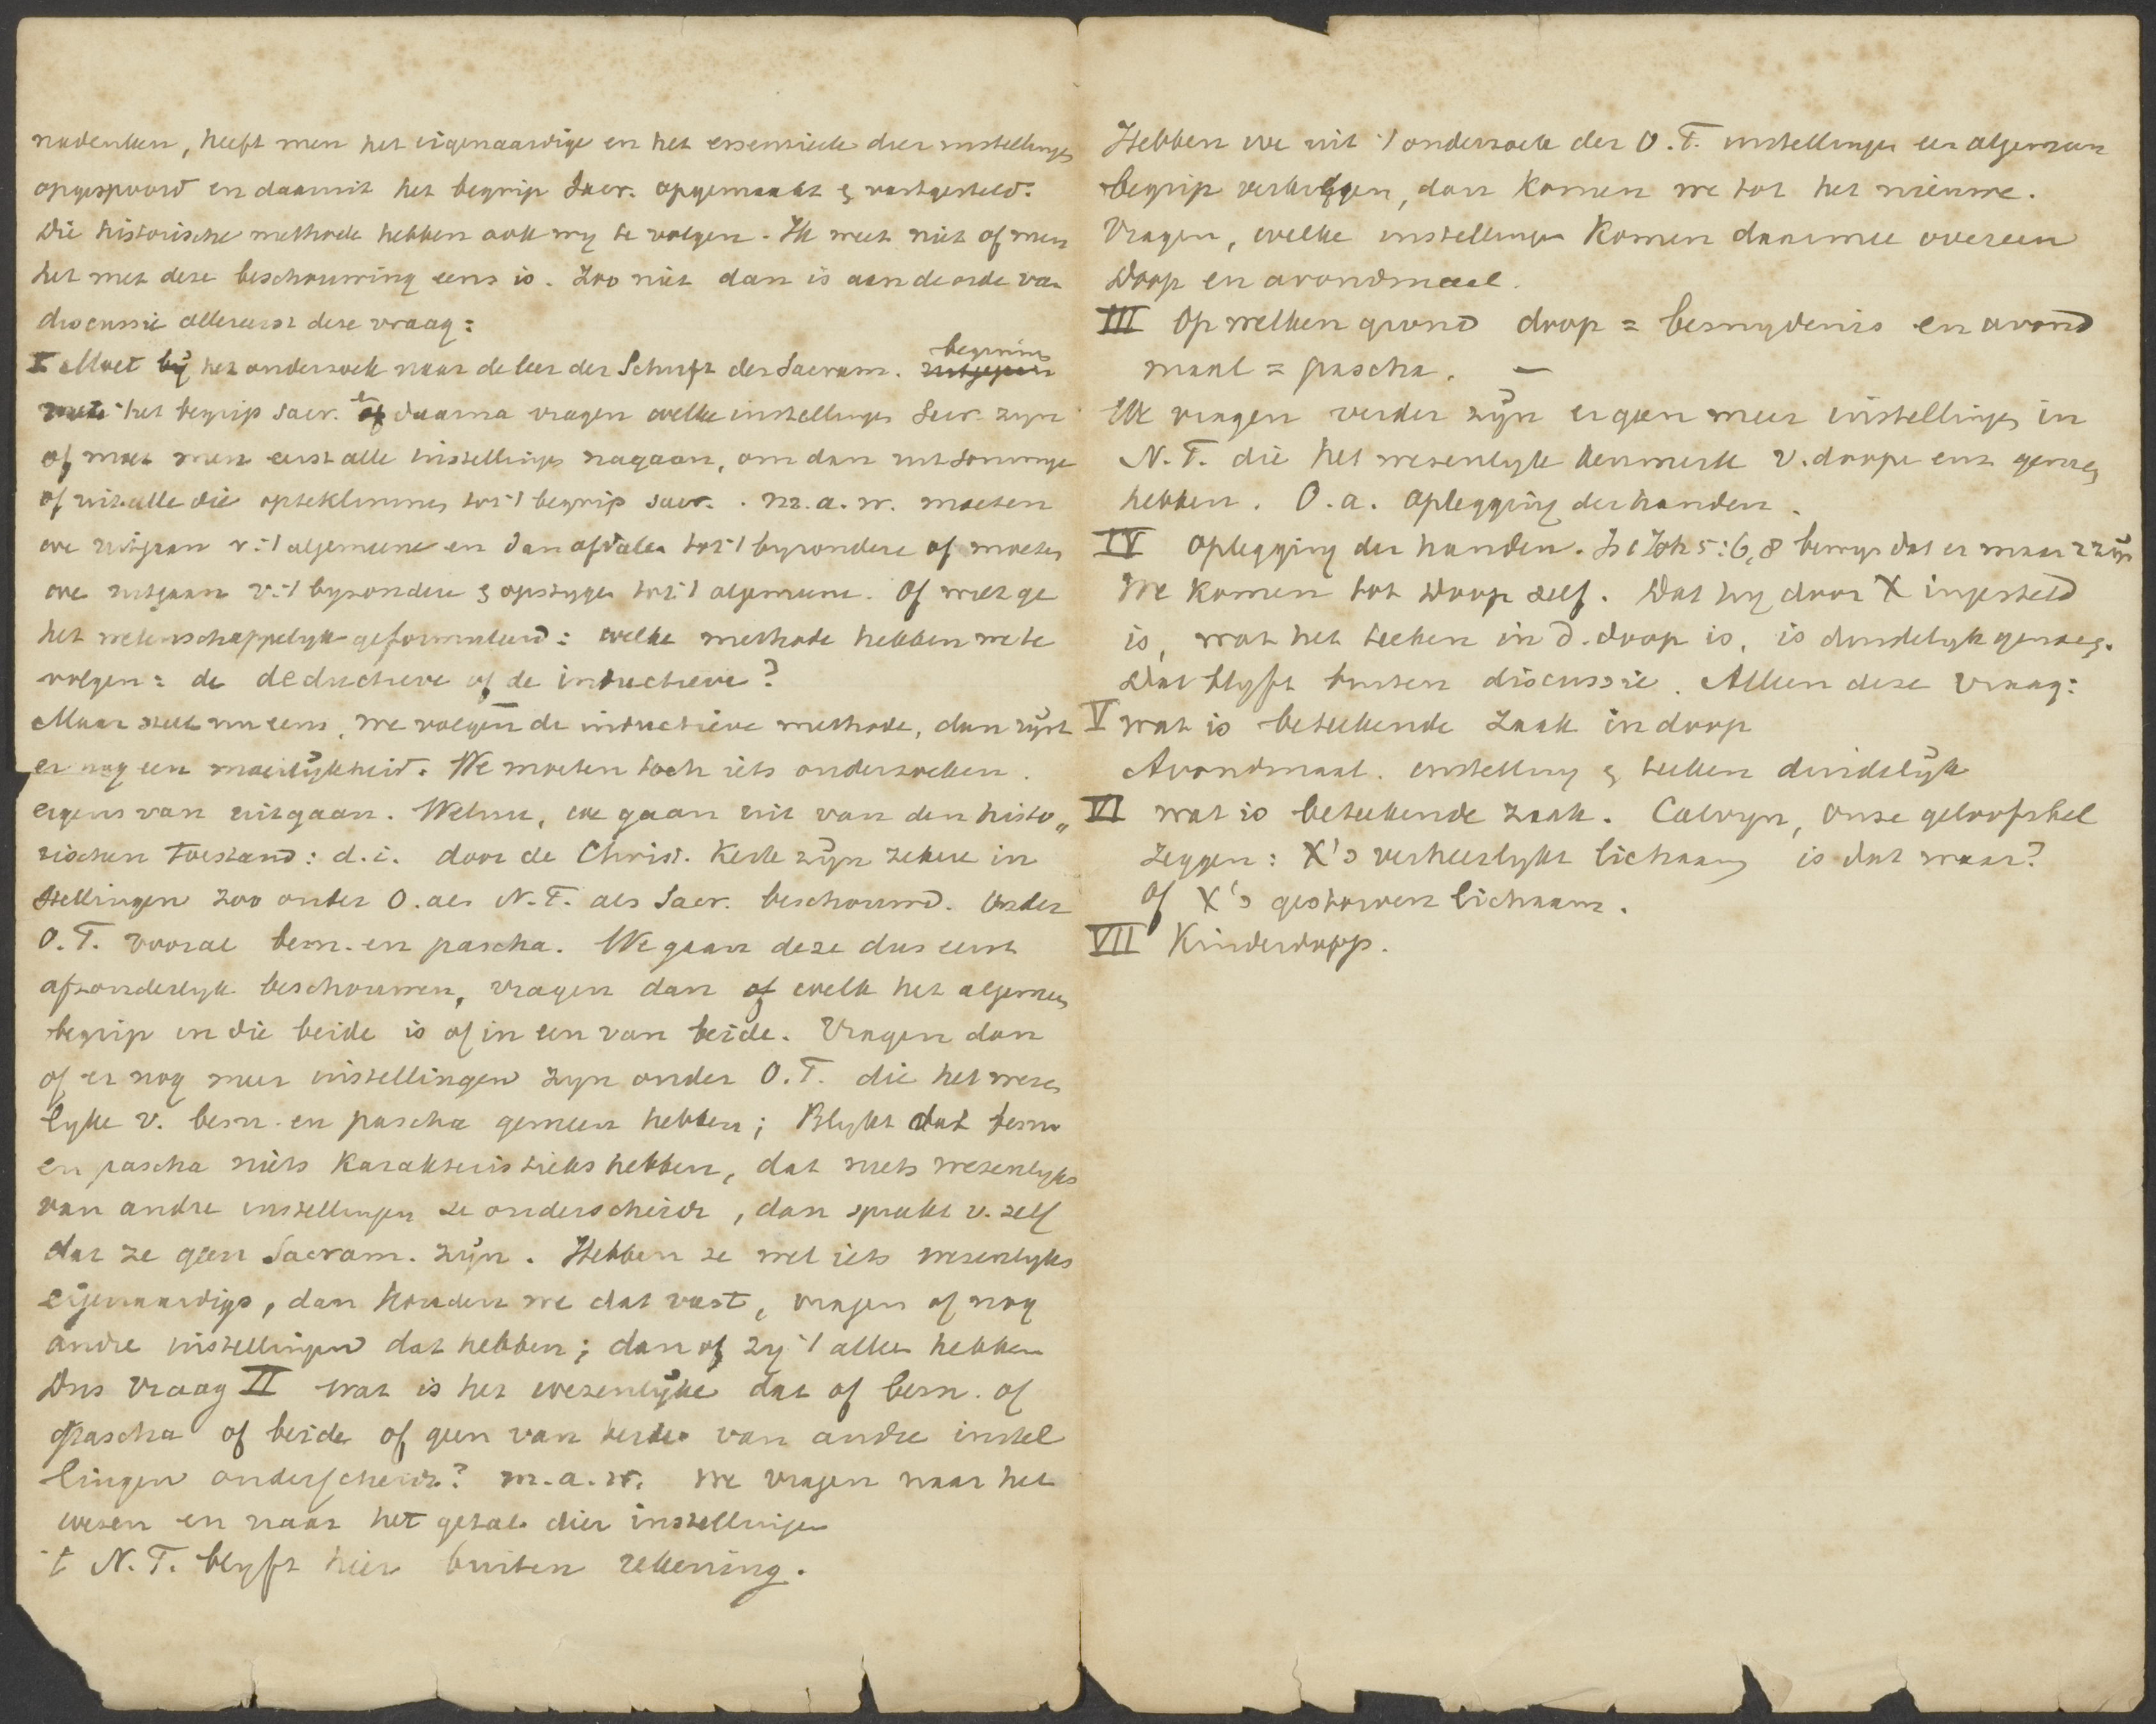 nadenken, heeft men het eigenaardige en het essentieele dier instellingen
opgespoord en daaruit het begrip Sacr. opgemaakt & vastgesteld.
Die historische methode hebben ook wy te volgen. Ik weet niet of men
het met deze beschouwing eens is. Zoo niet dan is aan de orde van
discussie allereerst deze vraag:
I Moet bij het onderzoek naar de leer der Schrift der Sacram. beginnen
met het begrip sacr. en daarna vragen welke instellingen Sacr. zyn
of moet men eerst alle instellingen nagaan, om dan uit sommige
of uit alle die opteklimmen tot 't begrip sacr. . m.a.w. moeten
we uitgaan v. 't algemeene en dan afdalen tot 't byzondere of moeten
we uitgaan v. 't byzondere & opstygen tot 't algemeene. Of wilt ge
het wetenschappelyk geformuleerd: welke methode hebben we te
volgen: de deductieve of de inductieve?
Maar stelt nu eens, we volgen de inductieve methode, dan rijst
er nog een moeilijkheid. We moeten toch iets onderzoeken.
ergens van uitgaan. Welnu, we gaan uit van den histo„
rischen toestand: d.i. door de Christ. Kerk zijn zekere in
stellingen zoo onder O. als N.T. als Sacr. beschouwd. Onder
O.T. vooral besn. en pascha. We gaan deze dus eerst
afzonderlyk beschouwen, vragen dan of welk het algemeen
begrip in die beide is of in een van beide. Vragen dan
of er nog meer instellingen zyn onder O.T. die het wezen
lyke v. besn. en pascha gemeen hebben; Blykt dat besn
en pascha niets karakteristieks hebben, dat niets wezenlyks
van andre instellingen ze onderscheidt, dan spreekt v. zelf
dat ze geen Sacram. zijn. Hebben ze wel iets wezenlyks
eigenaardigs, dan houden we dat vast, vragen of nog
andre instellingen dat hebben; dan of zy 't alleen hebben
Dus vraag II wat is het wezenlijke dat of besn. of
Pascha of beide of geen van beide van andre instel
lingen onderscheidt? m.a.w. we vragen naar het
wezen en naar het getal dier instellingen
't N.T. blyft hier buiten rekening.
Hebben we uit 't onderzoek der O.T. instellingen een algemeen
begrip verkregen, dan komen we tot het nieuwe.
Vragen, welke instellingen komen daarmee overeen
Doop en avondmaal.
III Op welken grond doop = besnydenis en avond
maal = pascha. —
We vragen verder zijn er geen meer instellingen in
N.T. die het wezenlyk kenmerk v. doop enz gemeen
hebben. O.a. oplegging der handen.
IV Oplegging der handen. Is 1 Joh 5:6,8 bewys dat er maar 2 zijn
We komen tot Doop zelf. Dat hy door X ingesteld
is, wat het teeken in d. doop is, is duidelyk genoeg.
Dat blyft buiten discussie. Alleen deze vraag:
V wat is beteekende zaak in doop
Avondmaal. instelling & teeken duidelijk
VI wat is beteekende zaak. Calvyn, onze geloofsbel
zeggen: X's verheerlykt lichaam is dat waar?
of X's gestorven lichaam.
VII Kinderdoop.